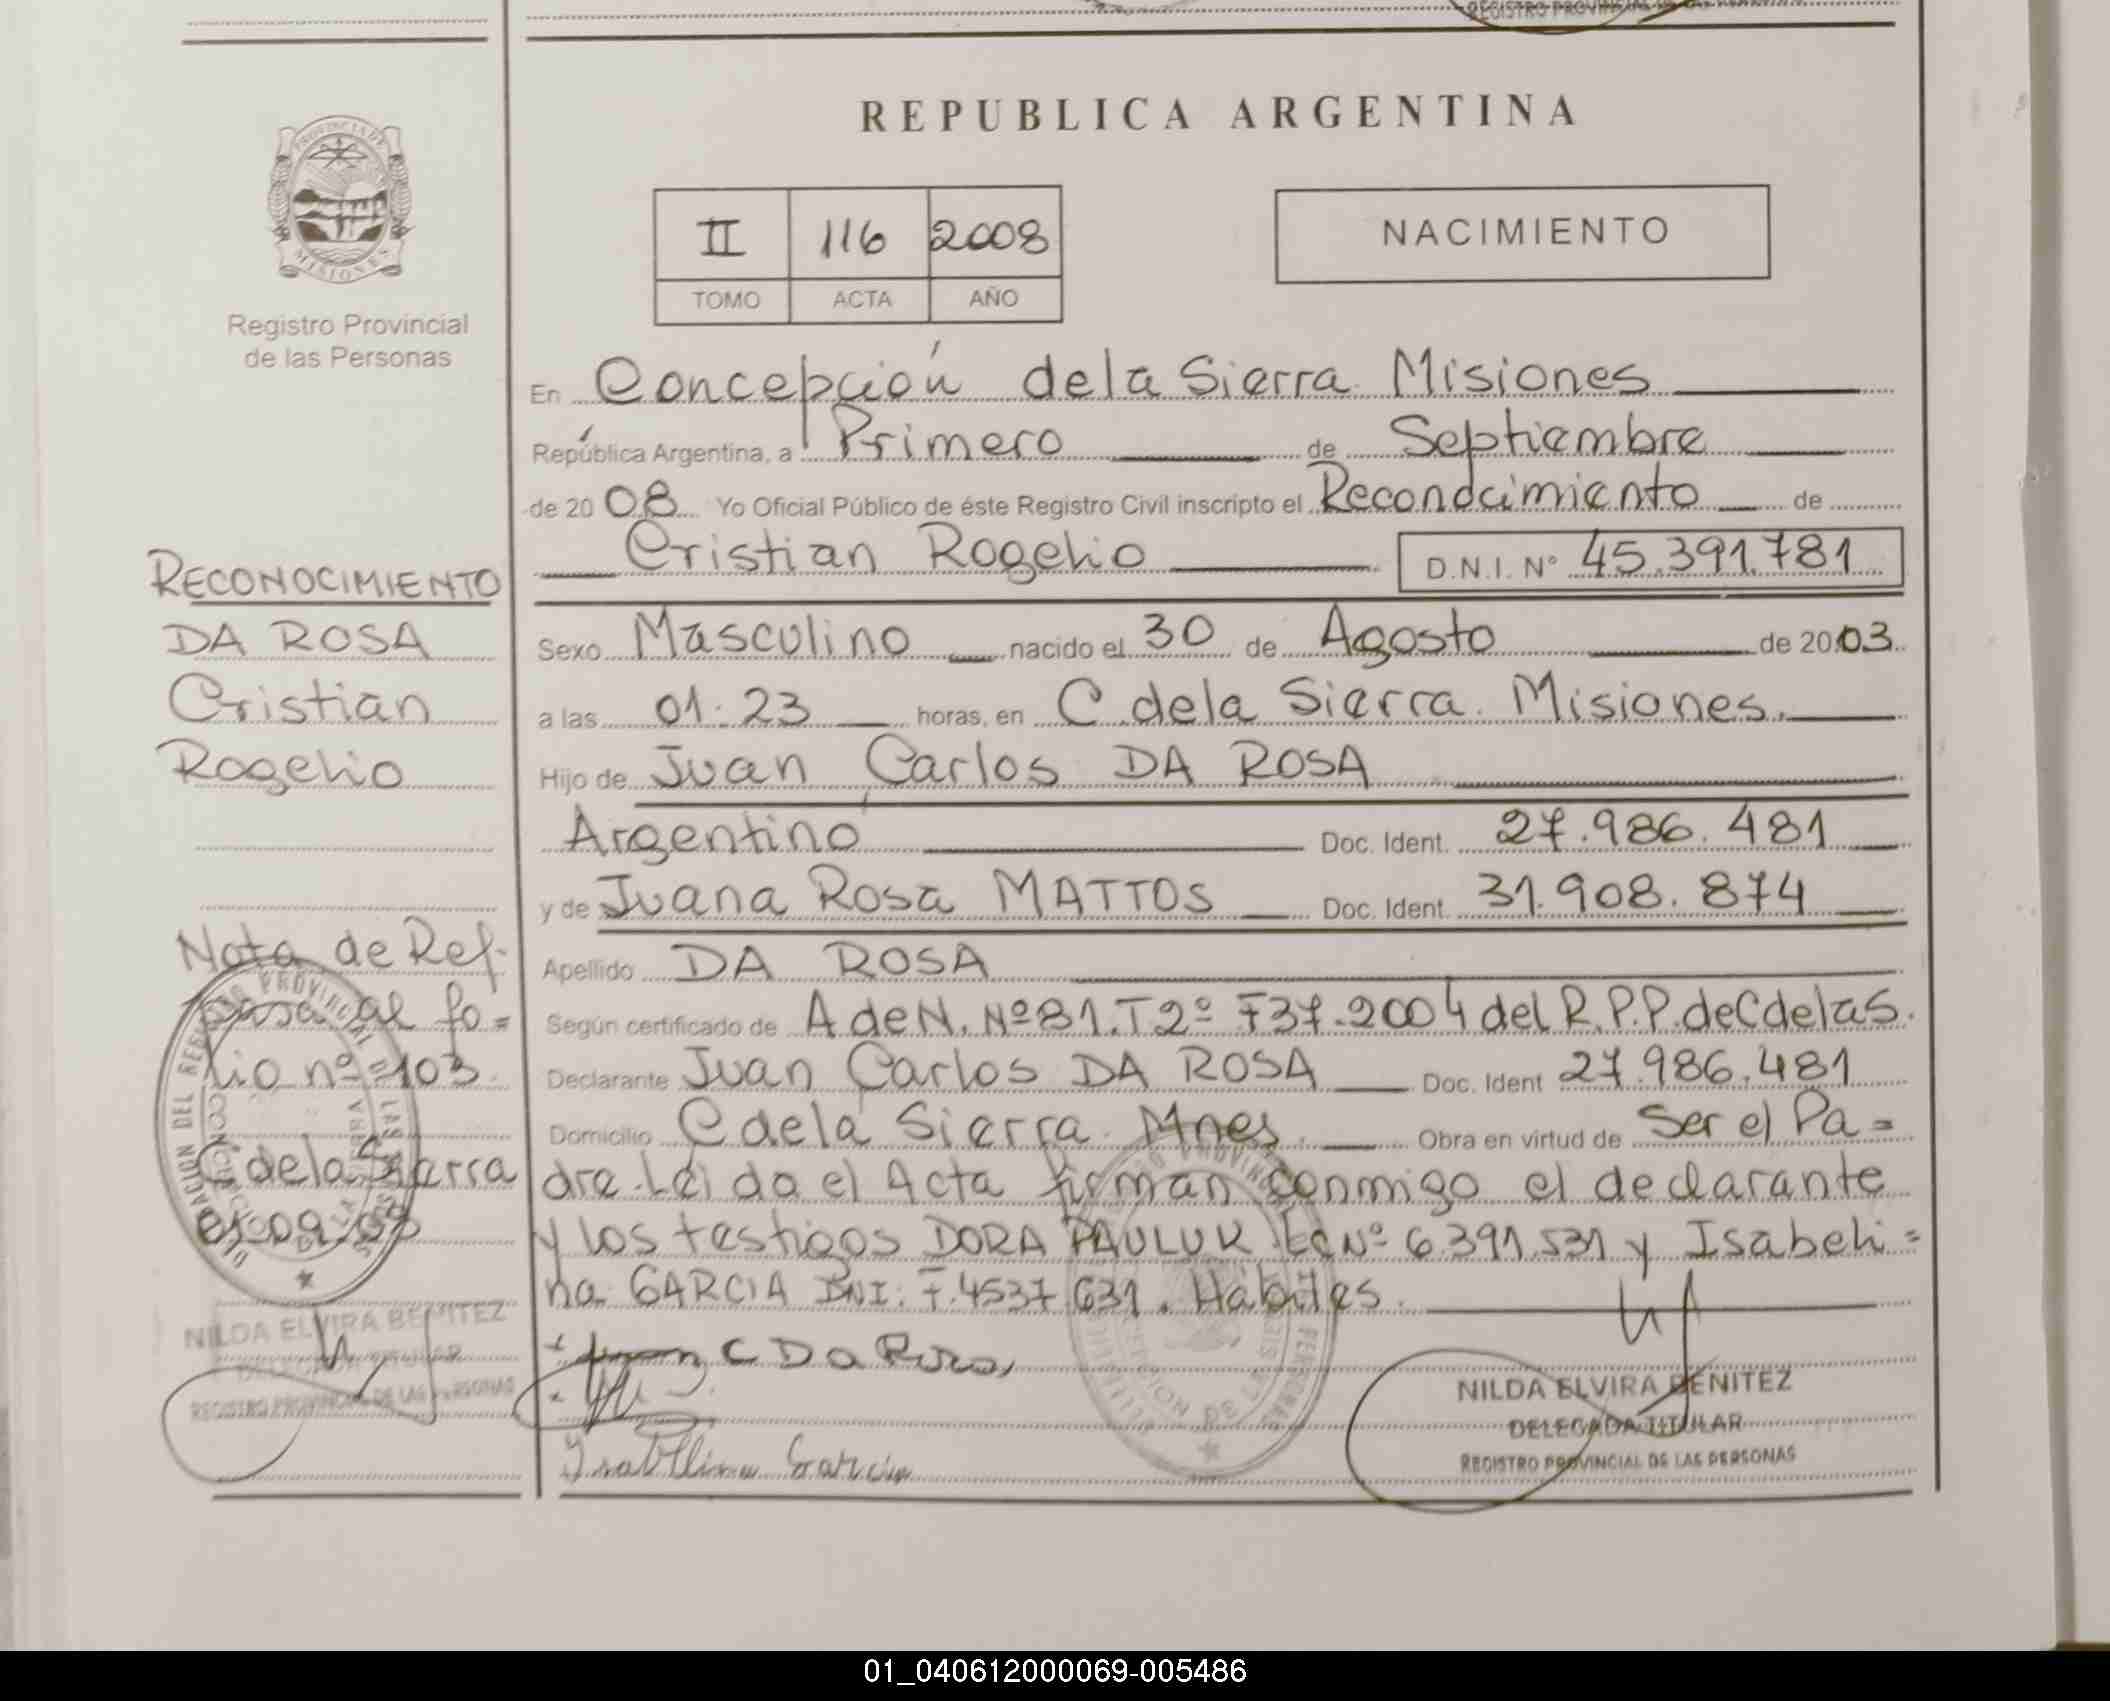 REGISTRO PROVINCIAL DE LAS PERSONAS
REPUBLICA ARGENTINA
PROVINCIA DE
MISIONES
Registro Provincial
de las Personas
II 116 2008
TOMO ACTA AÑO
NACIMIENTO
En Concepción de la Sierra. Misiones
República Argentina, a Primero de Septiembre
de 20 08 Yo Oficial Público de éste Registro Civil inscripto el Reconocimiento de
Cristian Rogelio D.N.I. Nº 45.391.781
Sexo Masculino nacido el 30 de Agosto de 20 03
a las 01:23 horas, en C. de la Sierra. Misiones.
Hijo de Juan Carlos DA ROSA
Argentino Doc. Ident. 27.986.481
y de Juana Rosa MATTOS Doc. Ident. 31.908.874
Apellido DA ROSA
Según certificado de A de N. Nº 81. T 2º F 37. 2004 del R.P.P. de C de la S.
Declarante Juan Carlos DA ROSA Doc. Ident 27.986.481
Domicilio C de la Sierra. Mnes. Obra en virtud de Ser el Pa=
dre. Leido el Acta firman conmigo el declarante
y los testigos DORA PAULUK LC Nº 6.391.531 y Isabeli=
na GARCIA DNI. F. 4537.631. Hábiles.
C Da Rosa
Isabelina Garcia
NILDA ELVIRA BENITEZ
DELEGADA TITULAR
REGISTRO PROVINCIAL DE LAS PERSONAS
RECONOCIMIENTO
DA ROSA
Cristian
Rogelio
Nota de Ref.
pasa al fo=
lio nº=103.
C de la Sierra
01.09.08
NILDA ELVIRA BENITEZ
DELEGADA TITULAR
REGISTRO PROVINCIAL DE LAS PERSONAS
01_040612000069-005486